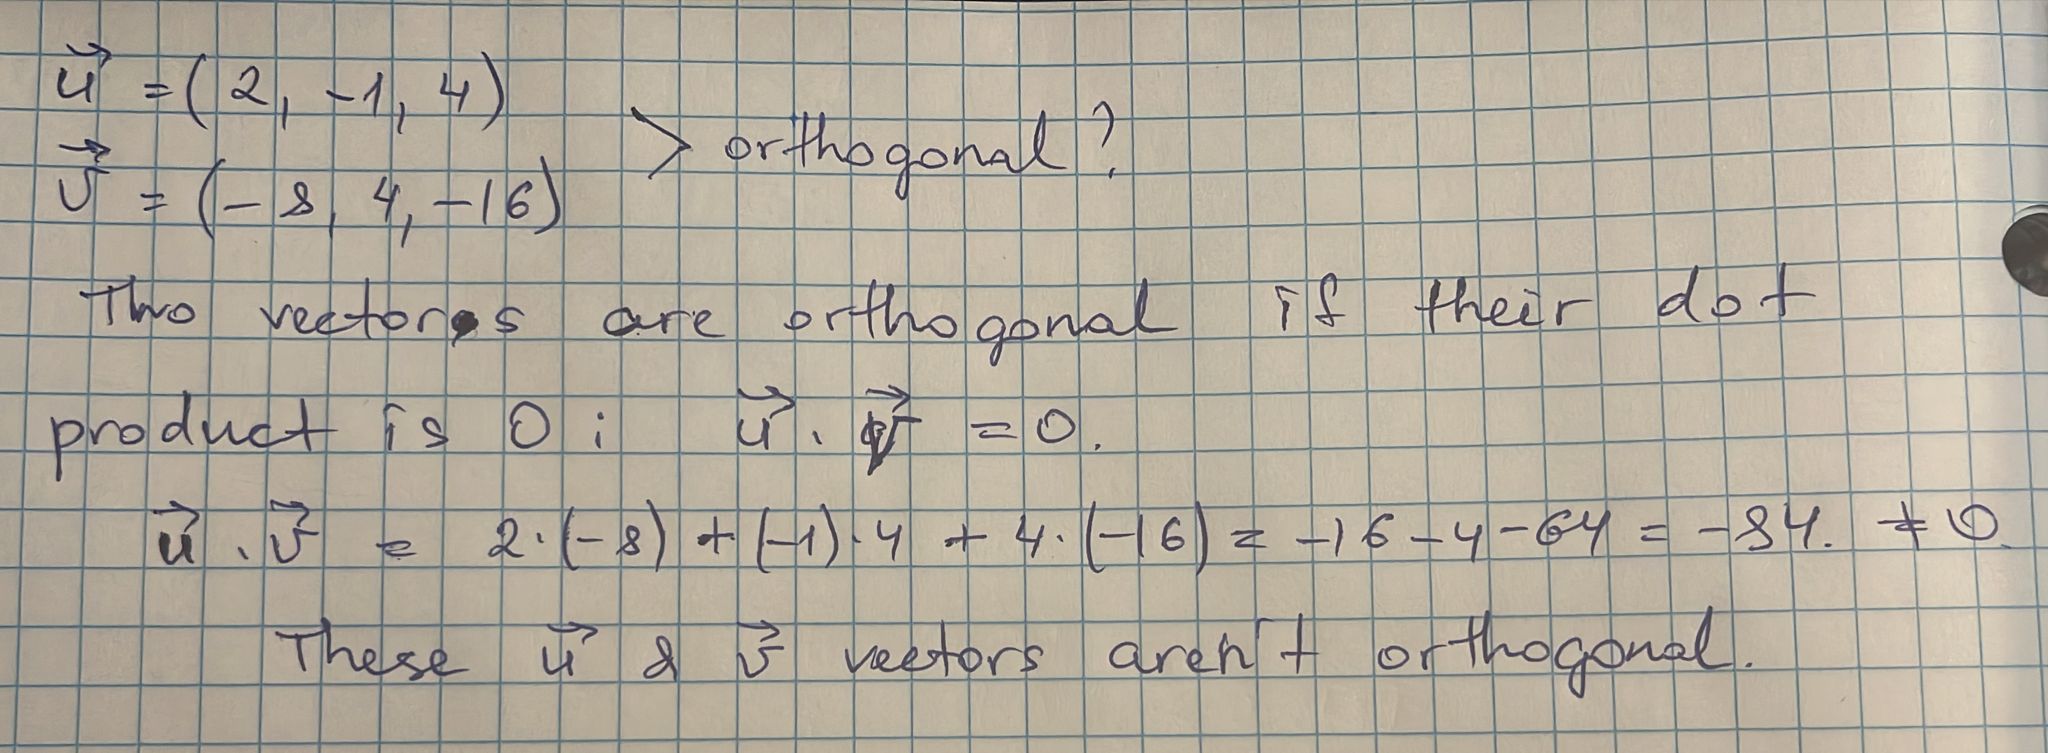 u⃗ = (2, -1, 4)
> orthogonal?
v⃗ = (-8, 4, -16)
Two vectors are orthogonal if their dot
product is 0: u⃗ · v⃗ = 0.
u⃗ · v⃗ = 2·(-8) + (-1)·4 + 4·(-16) = -16-4-64 = -84. ≠ 0.
These u⃗ & v⃗ vectors aren't orthogonal.